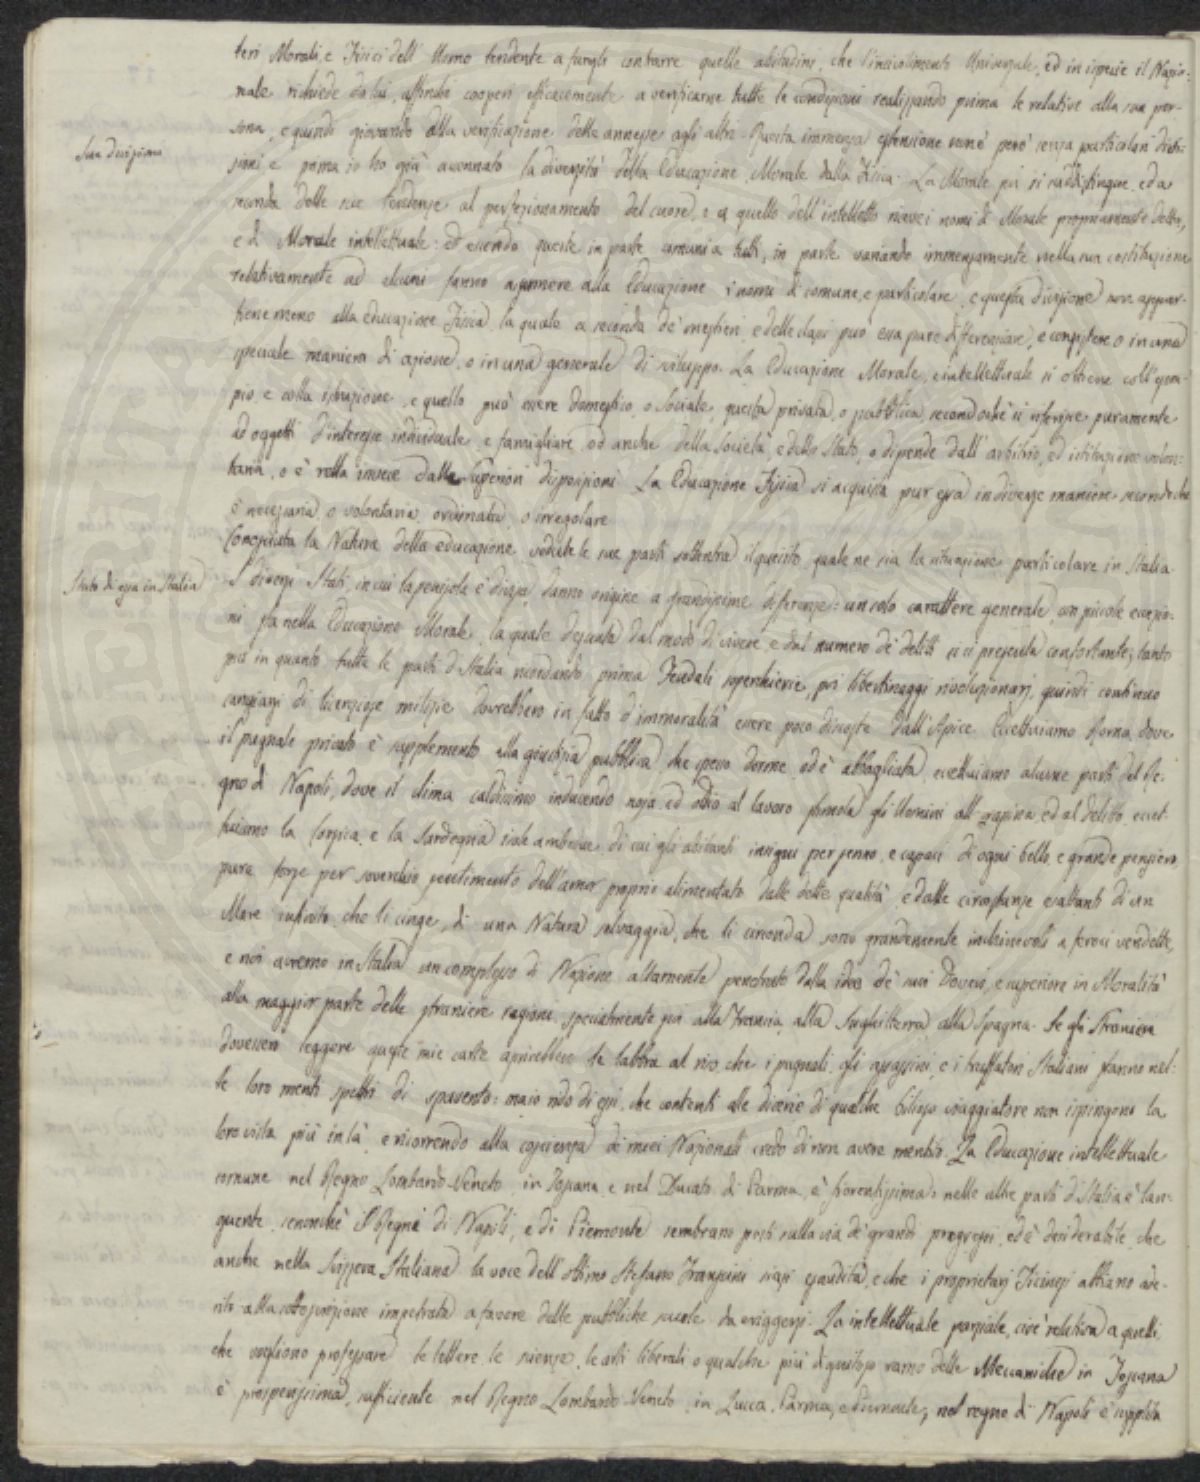 teri Morali, e Fisici dell' Uomo tendente a fargli contrarre quelle abitudini, che l'incivilimento Universale, ed in ispecie il Nazio-
nale richiede da lui, affinchè cooperi efficacemente a verificarne tutte le condizioni realizzando prima le relative alla sua per-
sona, e quindi giovando alla verificazione delle annesse agli altri. Questa immensa estensione non è però senza particolari divi-
Sua divisione
sioni e prima io ho già accennato la diversità della Educazione Morale dalla Fisica. La Morale poi si suddistingue, ed a
seconda delle sue tendenze al perfezionamento del cuore, o a quello dell'intelletto riceve i nomi di Morale propriamente detta,
e di Morale intellettuale: ed essendo queste in parte comuni a tutti, in parte variando immensamente nella sua costituzione
relativamente ad alcuni fanno assumere alla Educazione i nomi di comune, e particolare, e questa divisione non appar-
tiene meno alla educazione Fisica, la quale a seconda de' mestieri, e delle classi può essa pure differenziare, e consistere o in una
speciale maniera di azione, o in una generale di sviluppo. La Educazione Morale, e intellettuale si ottiene coll'esem-
pio e colla istruzione, e quello può essere domestico, o Sociale, questa privata, o pubblica, secondochè si riferisce puramente
ad oggetti d'interesse individuale, e famigliare, od anche della Società, e dello Stato, o dipende dall'arbitrio, ed istituzione volon-
taria, o è retta invece dalle superiori disposizioni. La Educazione Fisica si acquista pur essa in diverse maniere secondochè
è necessaria, o volontaria, ordinata, o irregolare.
Conosciuta la Natura della educazione, vedute le sue parti sottentra il quesito, quale ne sia la situazione particolare in Italia.
Stato di essa in Italia
I diversi Stati, in cui la penisola è divisa, danno origine a grandissime differenze: un solo carattere generale, con piccole eccezio-
ni sta nella Educazione Morale, la quale desunta dal modo di vivere, e dal numero de' delitti ci si presenta confortante, tanto
più in quanto tutte le parti d'Italia ricordando prima Feudali soperchierie, poi libertinaggi rivoluzionarj, quindi continuo
di licenziose milizie dovrebbero in fatto d'immoralità essere poco discoste dall'Apice. Eccettuiamo Roma, dove
il pugnale privato è supplemento alla giustizia pubblica, che spesso dorme, od è abbagliata, eccettuiamo alcune parti del Re-
gno di Napoli, dove il clima caldissimo inducendo noja ed odio al lavoro stimola gli Uomini alla rapina, ed al delitto, eccet-
tuiamo la Corsica, e la Sardegna isole ambedue, di cui gli abitanti insigni per senno, e capaci di ogni bello, e grande pensiero,
pure forse per soverchio sentimento dell'amor proprio alimentato dalle dette qualità, e dalle circostanze esaltanti di un
Mare infinito, che li cinge, di una Natura selvaggia, che li circonda sono grandemente inchinevoli a feroci vendette,
e noi avremo in Italia un complesso di Nazione altamente penetrato dalla idea de' suoi Doveri, e superiore in Moralità
alla maggior parte delle straniere regioni, specialmente poi alla Francia, alla Inghilterra, alla Spagna. Se gli Stranieri
dovessero leggere queste mie carte aprirebbero le labbra al riso, che i pugnali, gli assassini, e i truffatori Italiani stanno nel-
le loro menti spettri di spavento: ma io rido di essi, che contenti alle dicerie di qualche bilioso viaggiatore non ispingono la
loro vista più in là, e ricorrendo alla coscienza de' miei Nazionali credo di non avere mentito. La Educazione intellettuale
comune nel Regno Lombardo-Veneto, in Toscana, e nel Ducato di Parma, è fiorentissima: nelle altre parti d'Italia è lan-
guente, senonchè i Regni di Napoli, e di Piemonte sembrano posti sulla via de' grandi progressi, ed è desiderabile, che
anche nella Svizzera Italiana la voce dell'ottimo Stefano Franscini siasi esaudita, e che i proprietarj Ticinesi abbiano ade-
rito alla sottoscrizione impetrata a favore delle pubbliche scuole da eriggersi. La intellettuale parziale, cioè relativa a quelli,
che vogliono professare le lettere, le scienze, le arti liberali o qualche più squisito ramo delle Meccaniche in Toscana
è prosperissima, sufficiente nel Regno Lombardo-Veneto, in Lucca, Parma, e Piemonte; nel regno di Napoli è supplita